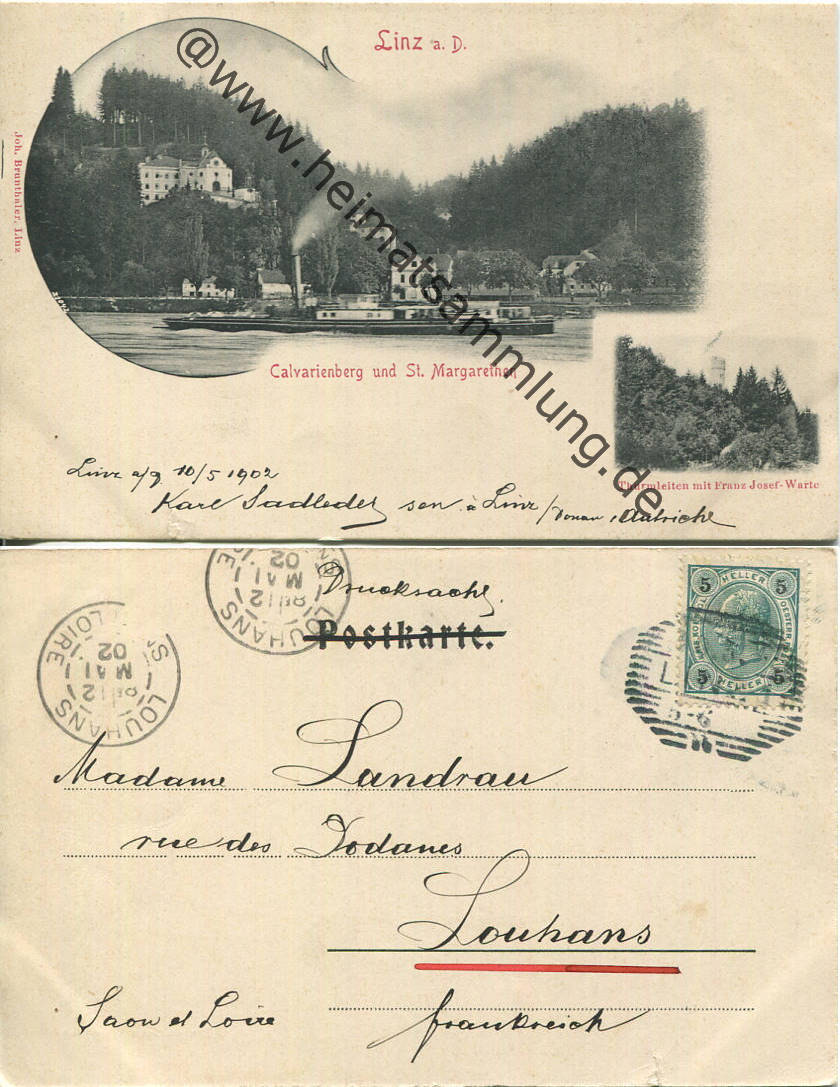 Linz a. D.
Joh. Brunthaler, Linz
@www.heimatsammlung.de
Calvarienberg und St. Margarethen
Thurmleiten mit Franz Josef-Warte
Linz a/D 10/5 1902
Karl Sadleder sen. à Linz / Donau, Autriche
Drucksache
Postkarte.
LOUHANS
12 MAI 02
LOIRE
LOUHANS
12 MAI 02
LOIRE
5 HELLER 5
5 HELLER 5
Madame Landrau
rue des Dodanes
Louhans
Saon et Loire
Frankreich